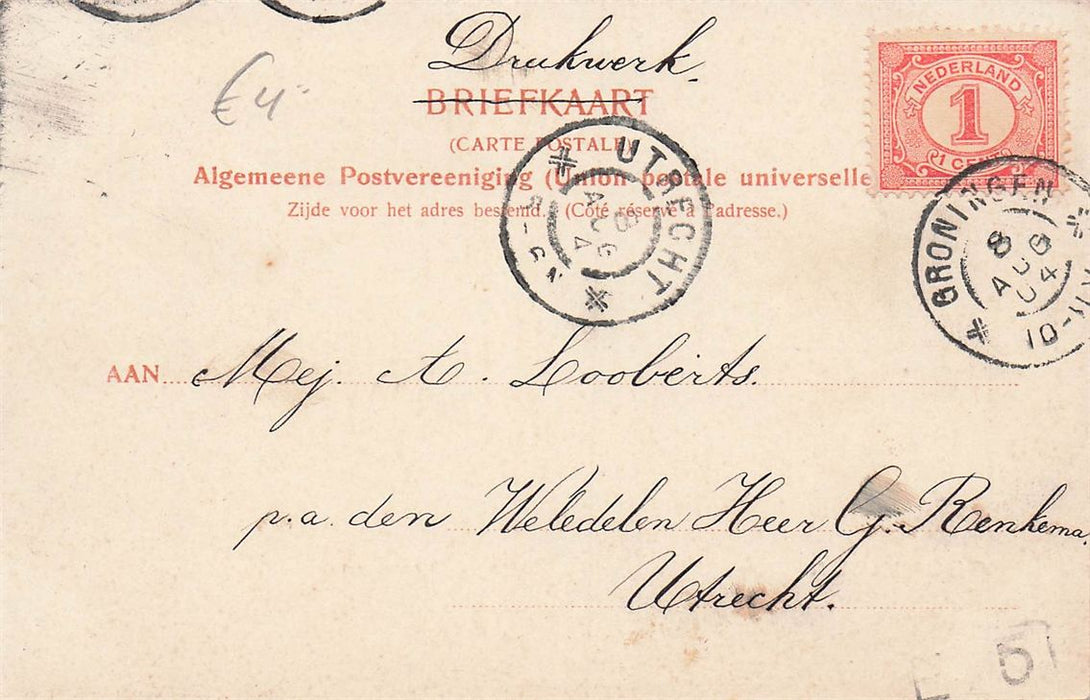 Drukwerk.
BRIEFKAART
€4,-
(CARTE POSTALE)
Algemeene Postvereeniging (Union postale universelle
Zijde voor het adres bestemd. (Côté réservé à l'adresse.)
NEDERLAND
1
1 CENT
UTRECHT
8 AUG 4
GRONINGEN
8 AUG 04
10-11
AAN Mej. A. Looberts.
p.a. den Weledelen Heer G. Renkema.
Utrecht.
51